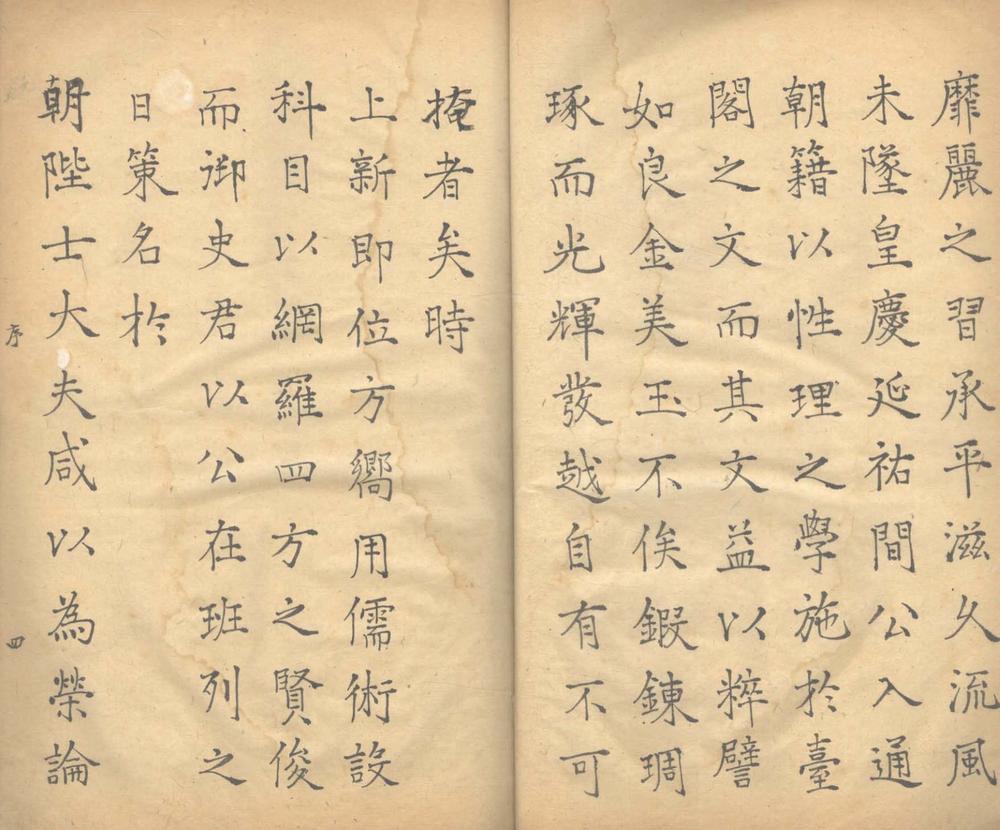 靡麗之習承平滋久流風
未墜皇慶延祐間公入通
朝籍以性理之學施於臺
閣之文而其文益以粹譬
如良金美玉不俟鍜鍊琱
琢而光輝發越自有不可
掩者矣時
上新即位方嚮用儒術設
科目以網羅四方之賢俊
而御史君以公在班列之
日策名於
朝陛士大夫咸以為榮論
序
四